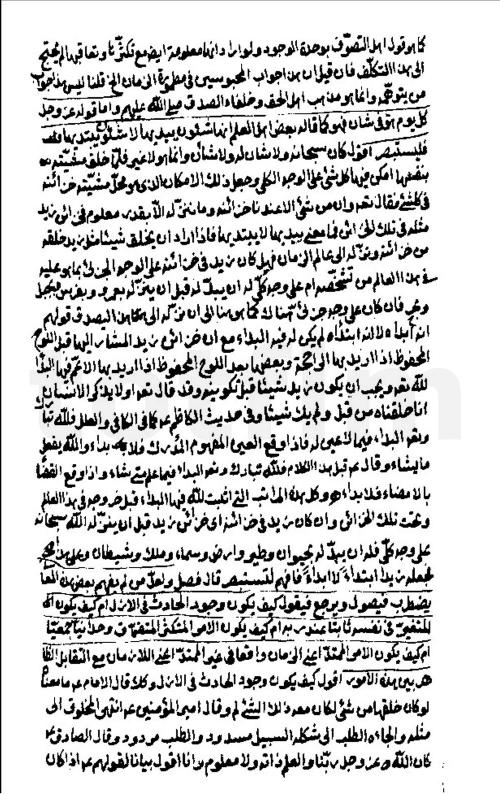 كما هو قول اهل التصوف بوحدة الوجود ولو اراد انها معلومة ايضا مع تكثرها وتعاقبها لم يحتج
الى هذا التكلف فان قيل ان هذا جواب المحبوسين في مطمورة الزمان الخ قلنا ليس هذا جواب
من يتوهمه وانما هو مذهب اهل الحق وخلفاء الصدق صلى الله عليهم واما قوله عز وجل
كل يوم هو في شان فهو كما قاله بعض اهل العلم انها شئون يبديها لا شئون يبتديها فصل
فليستبصر اقول كان سبحانه ولا شان له ولا شان وانما هو لا غير فلما خلق مشيته
بنفسها امكن فيها كل شئ على الوجه الكلي وجعل ذلك الامكان الذي هو محل مشيته خزائنه
فقال تعه وان من شئ الا عندنا خزائنه وما ننزله الا بقدر معلوم فخزائن زيد
مثله في تلك الخزائن فمعنى يبديها لا يبتديها فاذا اراد ان يخلق شيئا مثل زيد خلقه
من خزائنه ونزله الى عالم الزمان فهل كان زيد في خزائنه على الوجه الجزئي بما هو عليه
في هذا العالم من تشخصه ام على وجه كلي له ان يبدله قبل ان ينزله بعمرو وبفرس وبجبل
وغير فان كان على وجه جزئي هناك كما هو هنا الى ان نزله الى مكان هذا ليصدق قولهم
انه ابداه لا انه ابتداه لم يكن له فيه البداء مع ان خزائن زيد المشار اليها قبل اللوح
المحفوظ اذا اريد بها الى الجهة وبعضها بعد اللوح المحفوظ اذا اريد بها الاعم فيها البداء
لله تعه ويجب ان يكون زيد شيئا قبل تكوينه وقد قال تعه اولا يذكر الانسان
انا خلقناه من قبل ولم يك شيئا وفي حديث الكاظم عه كما في الكافي والعلل فلله تبارك
وتعه البداء فيما لا عين له فاذا وقع العين المفهوم المدرك فلا بداء والله يفعل
ما يشاء وقال عه قبل هذا الكلام فلله تبارك وتعه البداء فيما علم متى شاء واذا وقع القضاء
بالامضاء فلا بداء وكل هذه المراتب التي اثبت لله فيها البداء قبل خروجه في هذا العالم
وتحت تلك الخزائن وان كان زيد في خزائنه اي خزائن زيد قبل ان ينزله الله سبحانه
على وجه كلي فله ان يبدله بحيوان وطير وارض وسماء وملك وشيطان وعلى هذا
لجعله زيدا ابتداء لا ابداء فافهم لتستبصر قال فصل ولعل من لم يفهم بعض هذه المعاني
يضطرب فيصول ويرجع فيقول كيف يكون وجود الحادث في الازل ام كيف يكون
المتغير في نفسه ثابتا عند ربه ام كيف يكون الامر المتكثر المتفرق وحدانيا جمعيا
ام كيف يكون الامر الممتد اعني الزمان واقعا في غير الممتد اعني اللازمان مع التقابل الظا
هر بين هذه الامور اقول كيف يكون وجود الحادث في الازل وكلا قال الامام عه ما معناه
لو كان خلقها من شئ لكان معه ذلك الشئ لم وقال امير المؤمنين عه انتهى المخلوق الى
مثله والجاه الطلب الى شكله السبيل مسدود والطلب مردود وقال الصادق عه
كان الله عز وجل ربنا والعلم ذاته ولا معلوم وانا اقول بيانا لقولهم عه اذا كان